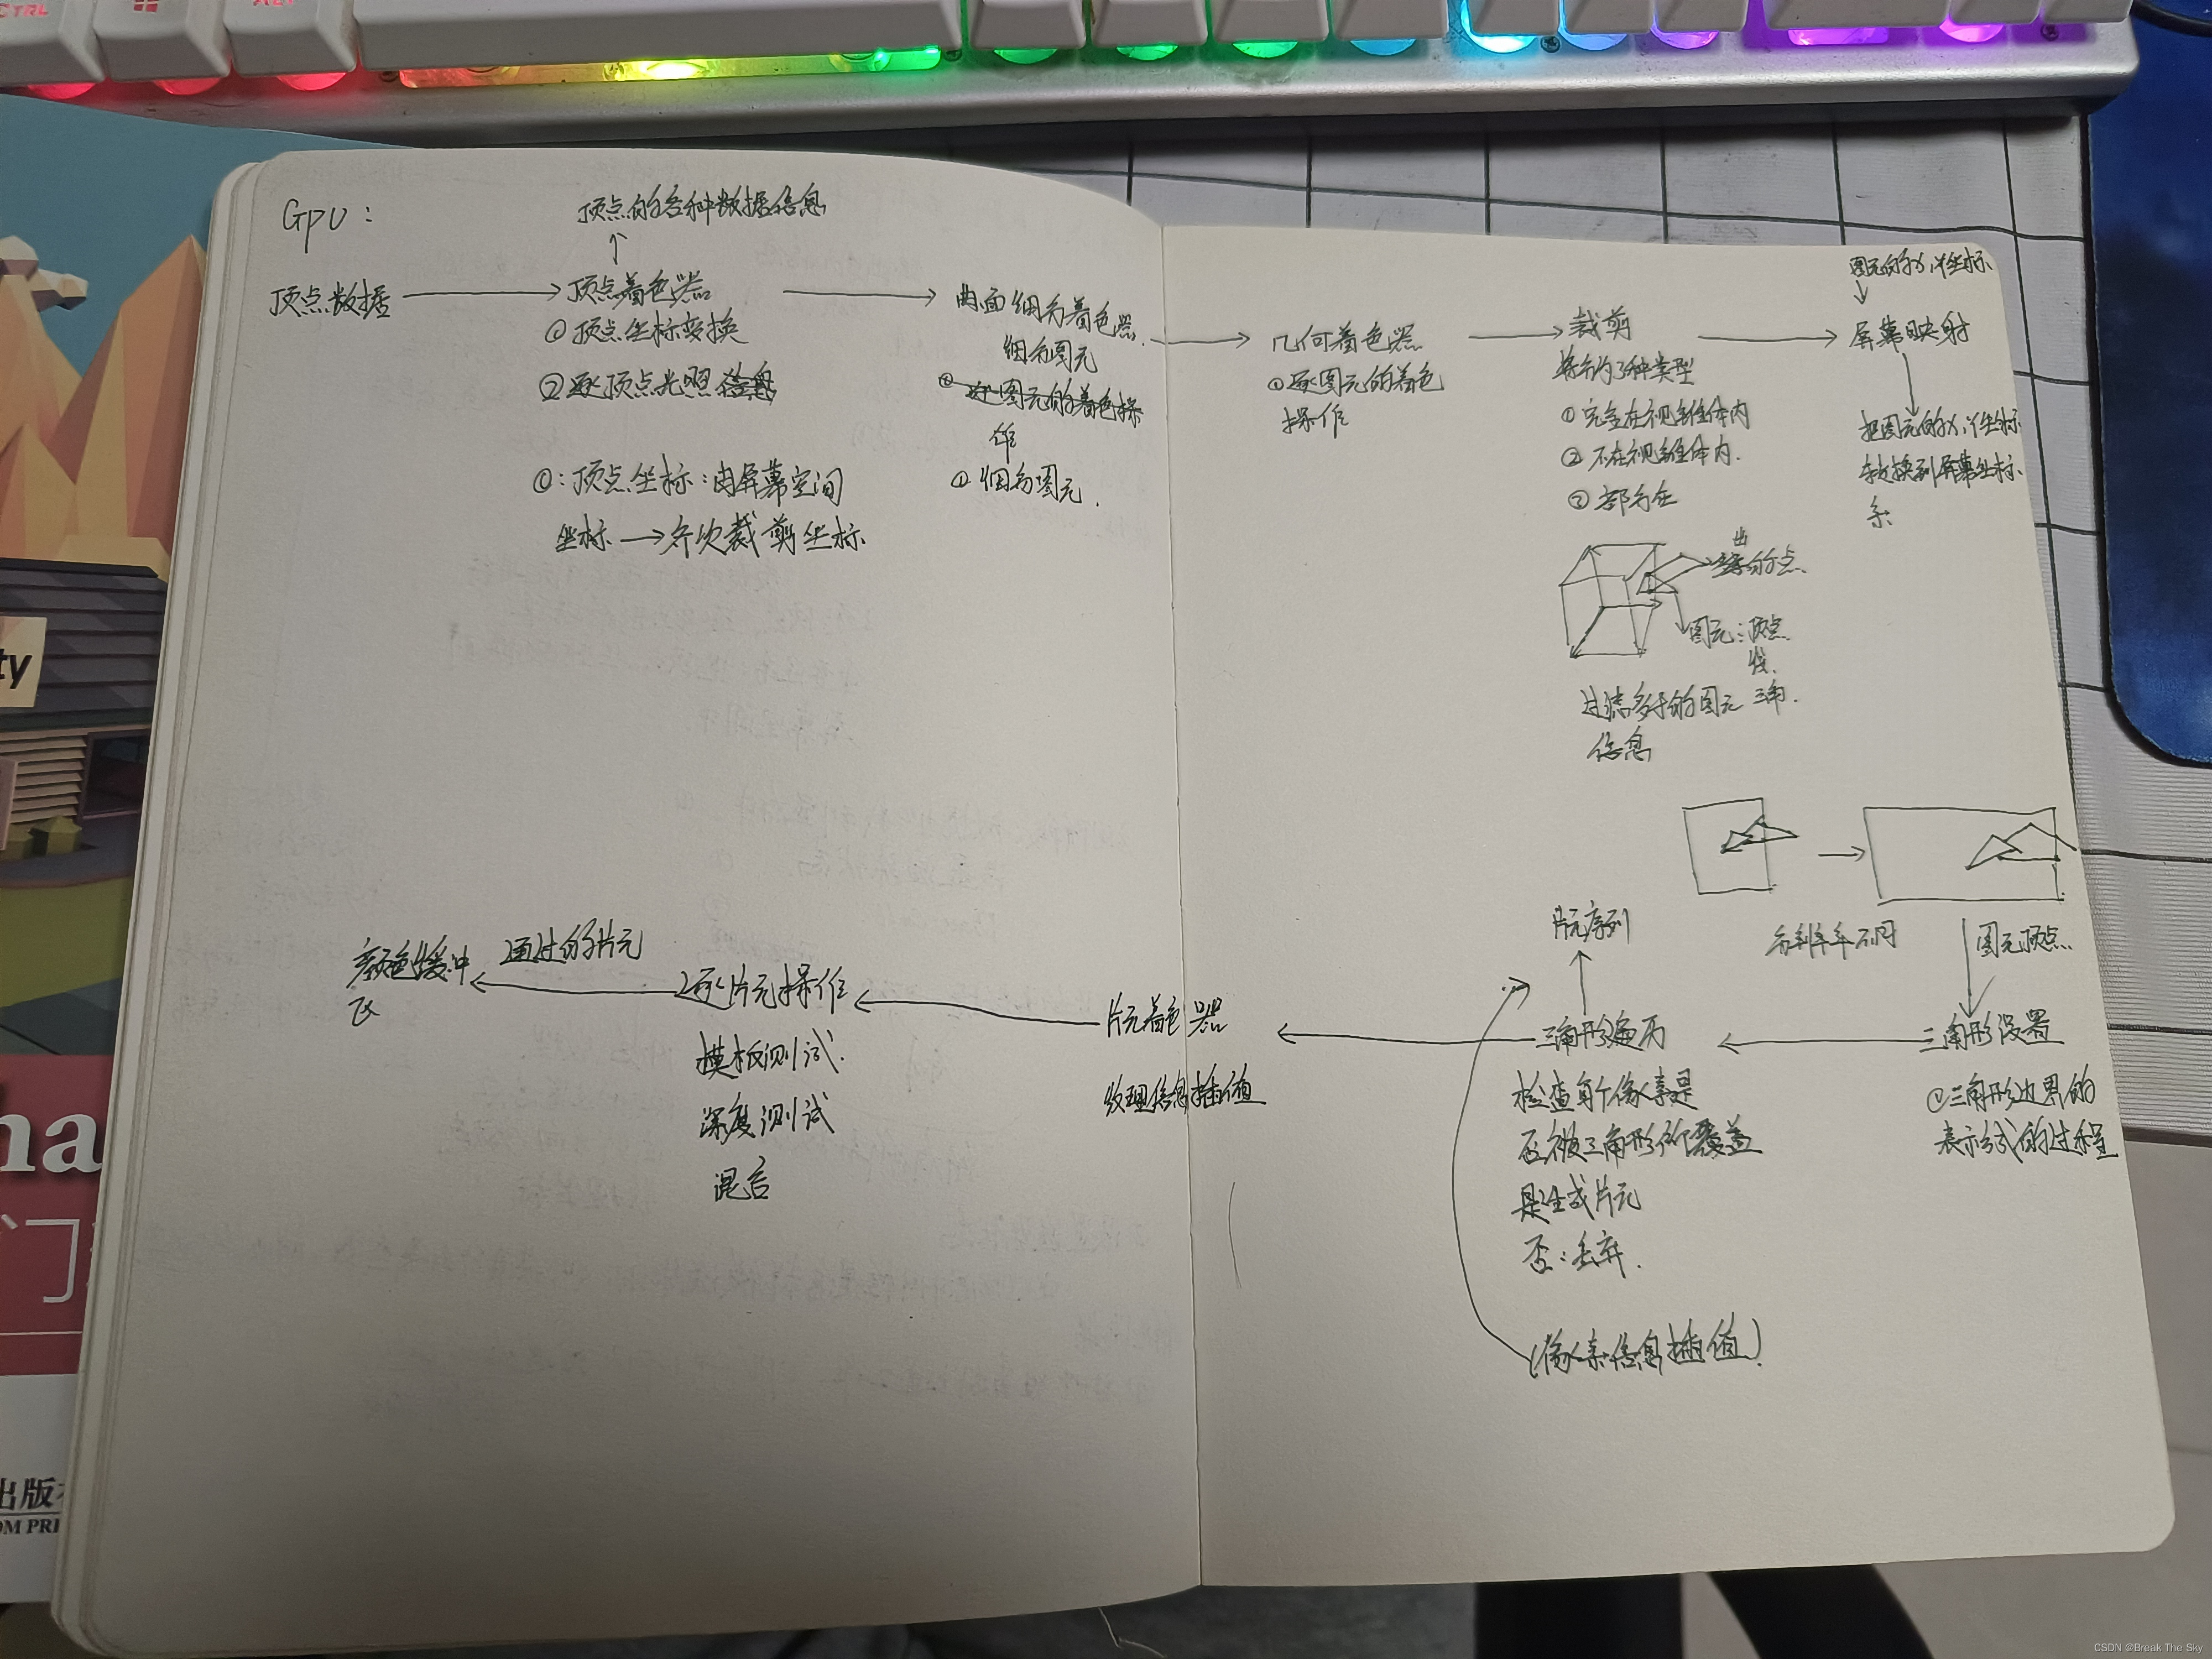 CTRL
ALT
Gpu：
顶点的各种数据信息
顶点数据
顶点着色器
① 顶点坐标变换
② 逐顶点光照
①：顶点坐标：由屏幕空间
坐标 → 齐次裁剪坐标
曲面细分着色器
细分图元
逐图元的着色操
作
① 细分图元.
几何着色器
① 逐图元的着色
操作
裁剪
将分为3种类型
① 完全在视锥体内
② 不在视锥体内.
③ 部分在
的点.
图元：顶点
线.
三角.
过滤多于的图元
信息
图元的X,Y坐标
屏幕映射
把图元的X,Y坐标
转换到屏幕坐标
系
分辨率不同
图元顶点
三角形设置
① 三角形边界的
表示式的过程
片元序列
三角形遍历
检查每个像素是
否被三角形所覆盖
是生成片元
否：丢弃.
(像素信息插值)
片元着色器
纹理信息插值
逐片元操作
模板测试.
深度测试
混合
通过的片元
颜色缓冲
区
ty
na
门
出版
OM PRE
CSDN @Break The Sky